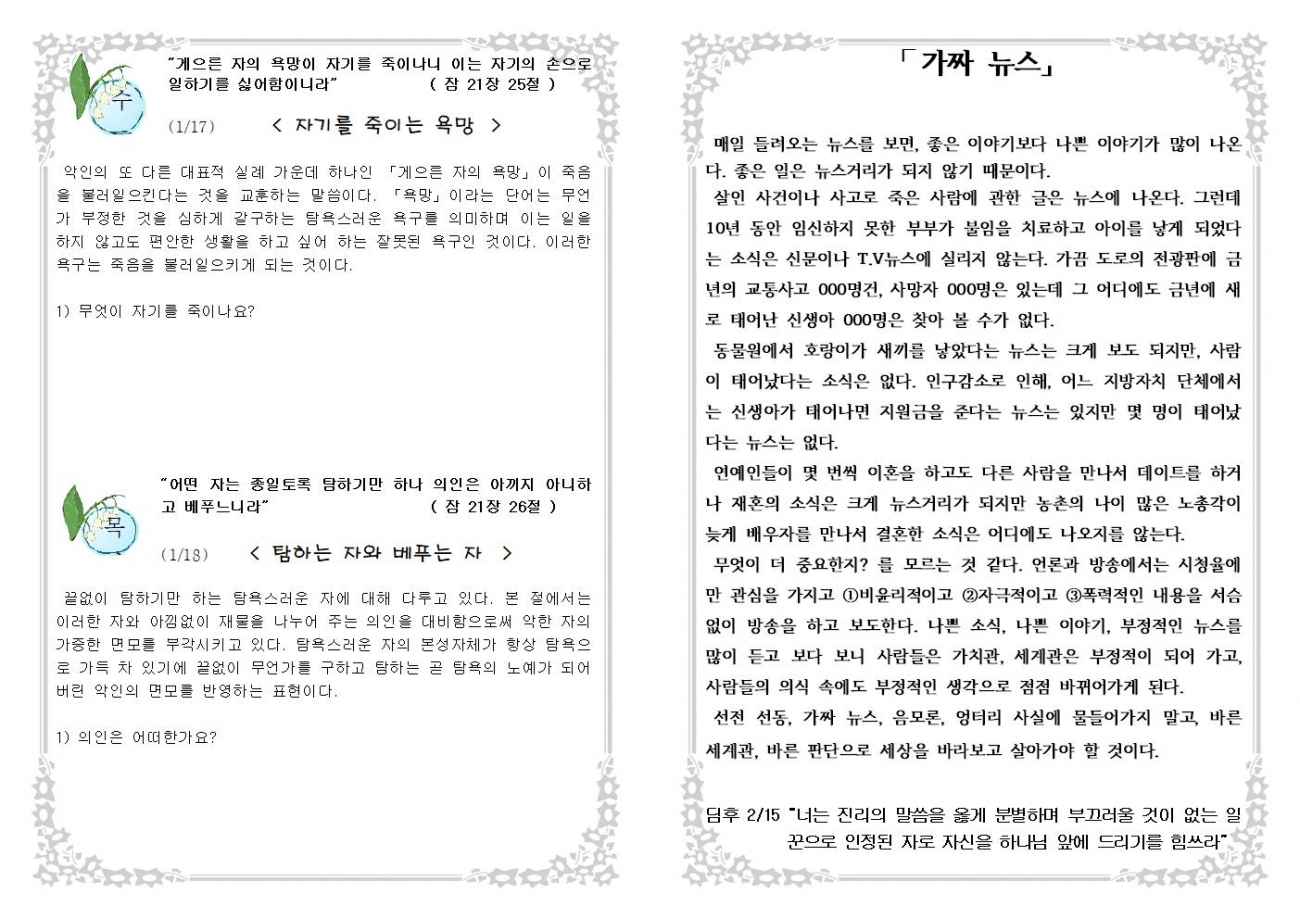 "게으른 자의 욕망이 자기를 죽이나니 이는 자기의 손으로
일하기를 싫어함이니라" ( 잠 21장 25절 )
수
(1/17) < 자기를 죽이는 욕망 >
악인의 또 다른 대표적 실례 가운데 하나인 「게으른 자의 욕망」이 죽음
을 불러일으킨다는 것을 교훈하는 말씀이다. 「욕망」이라는 단어는 무언
가 부정한 것을 심하게 갈구하는 탐욕스러운 욕구를 의미하며 이는 일을
하지 않고도 편안한 생활을 하고 싶어 하는 잘못된 욕구인 것이다. 이러한
욕구는 죽음을 불러일으키게 되는 것이다.
1) 무엇이 자기를 죽이나요?
"어떤 자는 종일토록 탐하기만 하나 의인은 아끼지 아니하
고 베푸느니라" ( 잠 21장 26절 )
목
(1/18) < 탐하는 자와 베푸는 자 >
끝없이 탐하기만 하는 탐욕스러운 자에 대해 다루고 있다. 본 절에서는
이러한 자와 아낌없이 재물을 나누어 주는 의인을 대비함으로써 악한 자의
가증한 면모를 부각시키고 있다. 탐욕스러운 자의 본성자체가 항상 탐욕으
로 가득 차 있기에 끝없이 무언가를 구하고 탐하는 곧 탐욕의 노예가 되어
버린 악인의 면모를 반영하는 표현이다.
1) 의인은 어떠한가요?
「가짜 뉴스」
매일 들려오는 뉴스를 보면, 좋은 이야기보다 나쁜 이야기가 많이 나온
다. 좋은 일은 뉴스거리가 되지 않기 때문이다.
살인 사건이나 사고로 죽은 사람에 관한 글은 뉴스에 나온다. 그런데
10년 동안 임신하지 못한 부부가 불임을 치료하고 아이를 낳게 되었다
는 소식은 신문이나 T.V뉴스에 실리지 않는다. 가끔 도로의 전광판에 금
년의 교통사고 000명건, 사망자 000명은 있는데 그 어디에도 금년에 새
로 태어난 신생아 000명은 찾아 볼 수가 없다.
동물원에서 호랑이가 새끼를 낳았다는 뉴스는 크게 보도 되지만, 사람
이 태어났다는 소식은 없다. 인구감소로 인해, 어느 지방자치 단체에서
는 신생아가 태어나면 지원금을 준다는 뉴스는 있지만 몇 명이 태어났
다는 뉴스는 없다.
연예인들이 몇 번씩 이혼을 하고도 다른 사람을 만나서 데이트를 하거
나 재혼의 소식은 크게 뉴스거리가 되지만 농촌의 나이 많은 노총각이
늦게 배우자를 만나서 결혼한 소식은 어디에도 나오지를 않는다.
무엇이 더 중요한지? 를 모르는 것 같다. 언론과 방송에서는 시청율에
만 관심을 가지고 ①비윤리적이고 ②자극적이고 ③폭력적인 내용을 서슴
없이 방송을 하고 보도한다. 나쁜 소식, 나쁜 이야기, 부정적인 뉴스를
많이 듣고 보다 보니 사람들은 가치관, 세계관은 부정적이 되어 가고,
사람들의 의식 속에도 부정적인 생각으로 점점 바뀌어가게 된다.
선전 선동, 가짜 뉴스, 음모론, 엉터리 사실에 물들어가지 말고, 바른
세계관, 바른 판단으로 세상을 바라보고 살아가야 할 것이다.
딤후 2/15 "너는 진리의 말씀을 옳게 분별하며 부끄러울 것이 없는 일
꾼으로 인정된 자로 자신을 하나님 앞에 드리기를 힘쓰라"